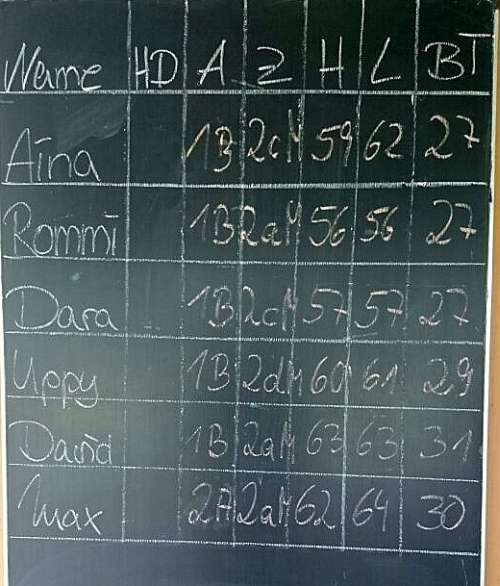 Name HD A Z H L BT
Aina 1B 2cM 59 62 27
Rommi 1B 2aM 56 56 27
Dara 1B 2cM 57 57 27
Uppy 1B 2dM 60 61 29
David 1B 2aM 63 63 31
Max 2A 2aM 62 64 30